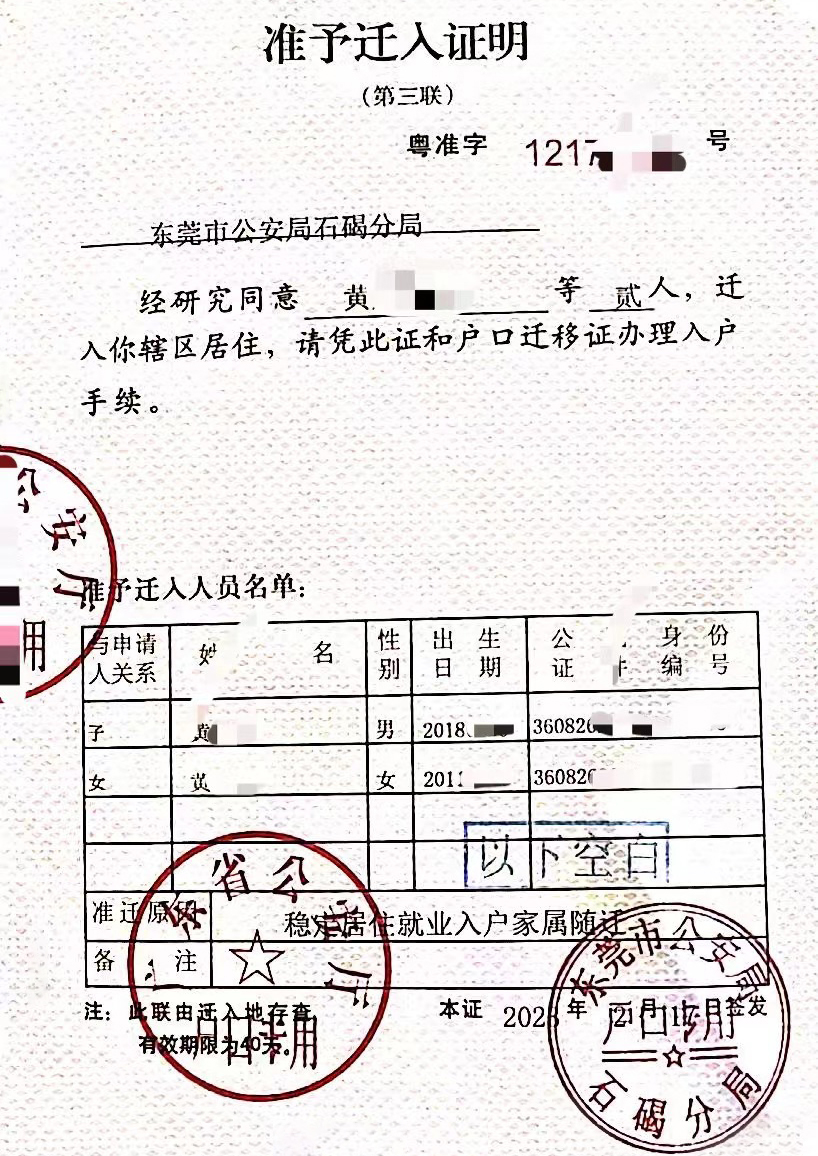 准予迁入证明
（第三联）
粤准字 1217 号
东莞市公安局石碣分局
经研究同意 黄 等 贰 人，迁
入你辖区居住，请凭此证和户口迁移证办理入户
手续。
公安厅
用
准予迁入人员名单：
与申请人关系 姓 名 性别 出生日期 公 身份证 编号
子 黄 男 2018 360826
女 黄 女 201 360826
以下空白
准迁原因 稳定居住就业入户家属随迁
备注
广东省公安厅
户口专用
注：此联由迁入地存查，
有效期限为40天。
本证 2023 年 12 月 日签发
东莞市公安局
户口专用
石碣分局